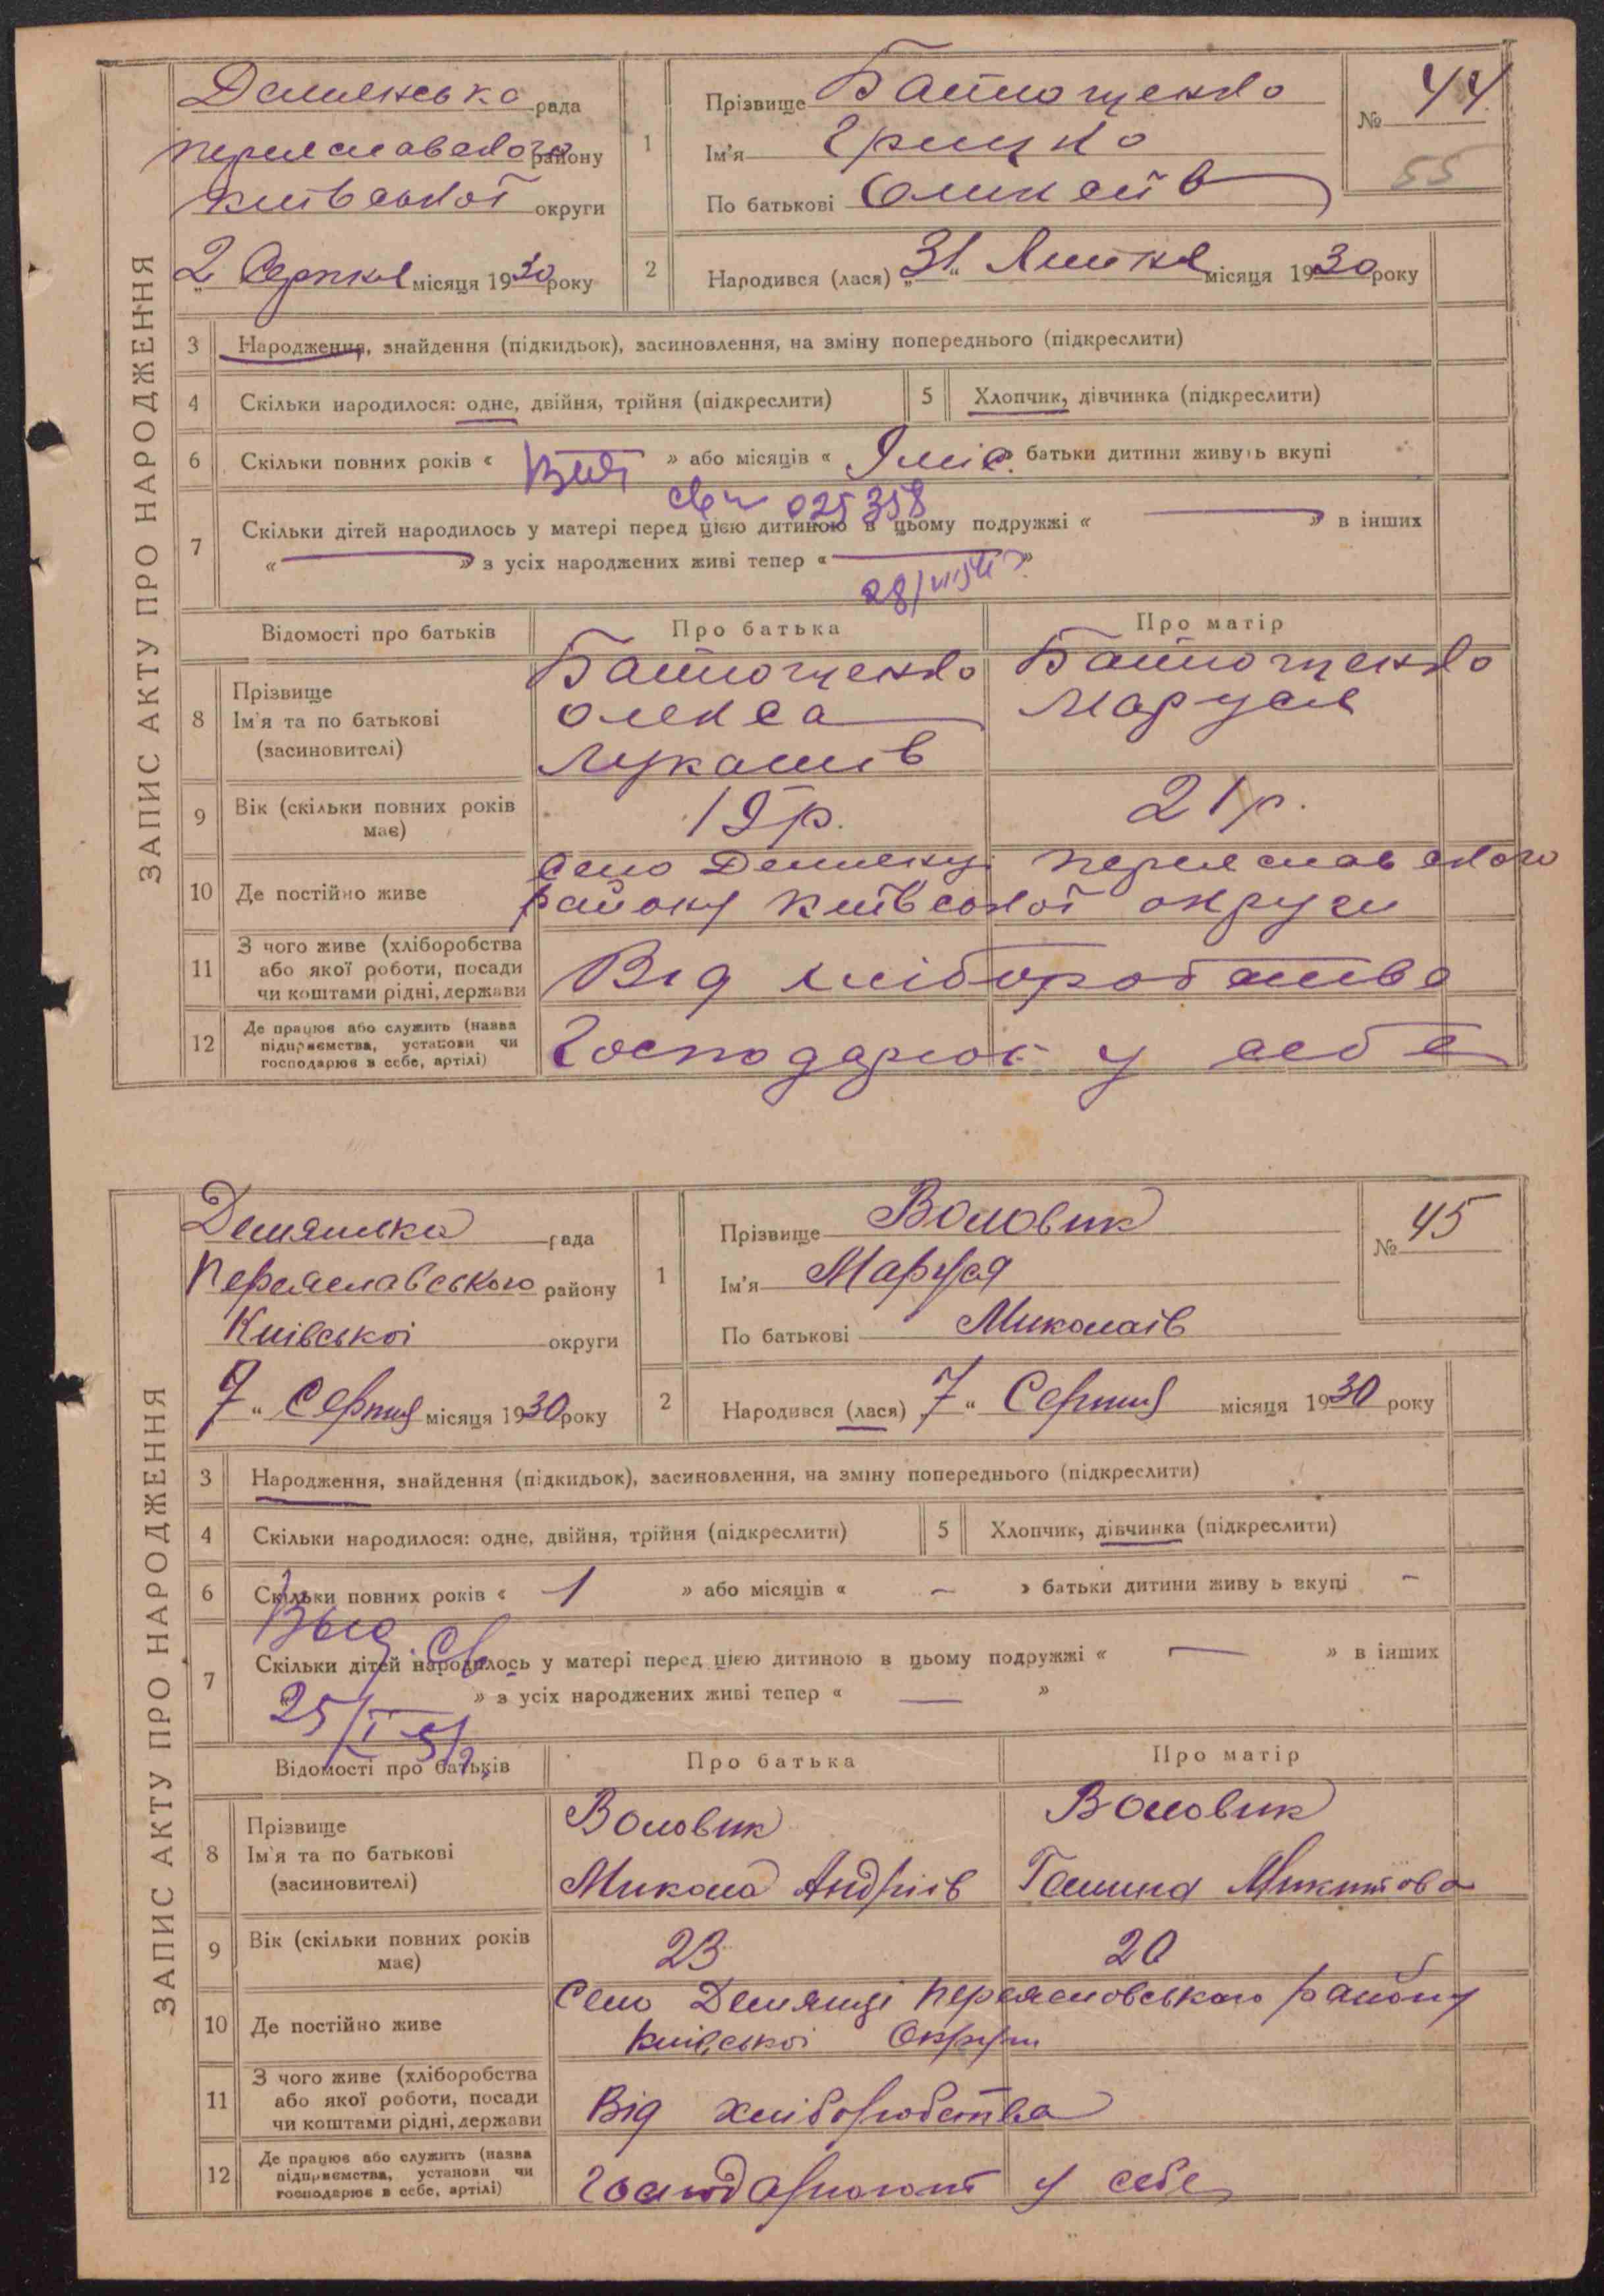 ЗАПИС АКТУ ПРО НАРОДЖЕННЯ
Демянська рада
Переяславского району
Київської округи
2 Серпня місяця 1930 року
1 Прізвище
Ім'я Грицко
По батькові Олексіїв
№ 44
55
2 Народився (лася) „31“ Липня місяця 1930 року
3 Народження, знайдення (підкидьок), засиновлення, на зміну попереднього (підкреслити)
4 Скільки народилося: одне, двійня, трійня (підкреслити) 5 Хлопчик, дівчинка (підкреслити)
6 Скільки повних років « » або місяців « 9 міс. » батьки дитини живуть вкупі
025358
7 Скільки дітей народилось у матері перед цією дитиною в цьому подружжі « — » в інших
« — » з усіх народжених живі тепер « — »
Відомості про батьків Про батька Про матір
8 Прізвище
Ім'я та по батькові
(засиновителі)
Олекса Маруся
Лукашів
9 Вік (скільки повних років має) 19 р. 21 р.
10 Де постійно живе село Демянці Переяславского
району Київської округи
11 З чого живе (хліборобства
або якої роботи, посади
чи коштами рідні, держави
Від хліборобства
12 Де працює або служить (назва
підприємства, установи чи
господарює в себе, артілі)
Господарює у себе
ЗАПИС АКТУ ПРО НАРОДЖЕННЯ
Демянська рада
Переяславського району
Київської округи
7 “ Серпня місяця 1930 року
1 Прізвище Воловик
Ім'я Маруся
По батькові Миколаїв
№ 45
2 Народився (лася) 7 “ Серпня місяця 1930 року
3 Народження, знайдення (підкидьок), засиновлення, на зміну попереднього (підкреслити)
4 Скільки народилося: одне, двійня, трійня (підкреслити) 5 Хлопчик, дівчинка (підкреслити)
6 Скільки повних років « 1 » або місяців « – » батьки дитини живу ь вкупі –
Выд. Св.
7 Скільки дітей народилось у матері перед цією дитиною в цьому подружжі « — » в інших
» з усіх народжених живі тепер « — »
Відомості про батьків Про батька Про матір
8 Прізвище
Ім'я та по батькові
(засиновителі)
Воловик Воловик
Микола Андріїв Галина Микитова
9 Вік (скільки повних років має) 23 20
10 Де постійно живе Село Демянці Переяславського району
Київської Округи
11 З чого живе (хліборобства
або якої роботи, посади
чи коштами рідні, держави
Від хліборобства
12 Де працює або служить (назва
підприємства, установи чи
господарює в себе, артілі)
Господарюють у себе